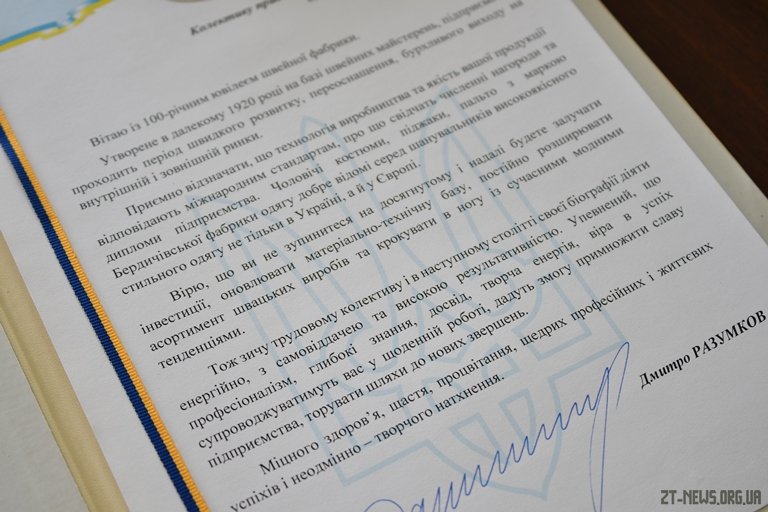 Колективу
Вітаю із 100-річним ювілеєм швейної фабрики.
Утворене в далекому 1920 році на базі швейних майстерень, підприємство
проходить період швидкого розвитку, переоснащення, бурхливого виходу на
внутрішній і зовнішній ринки.
Приємно відзначати, що технологія виробництва та якість вашої продукції
відповідають міжнародним стандартам, про що свідчать численні нагороди та
дипломи підприємства. Чоловічі костюми, піджаки, пальто з маркою
Бердичівської фабрики одягу добре відомі серед шанувальників високоякісного
стильного одягу не тільки в Україні, а й у Європі.
Вірю, що ви не зупинитеся на досягнутому і надалі будете залучати
інвестиції, оновлювати матеріально-технічну базу, постійно розширювати
асортимент швацьких виробів та крокувати в ногу із сучасними модними
тенденціями.
Тож зичу трудовому колективу і в наступному столітті своєї біографії діяти
енергійно, з самовіддачею та високою результативністю. Упевнений, що
професіоналізм, глибокі знання, досвід, творча енергія, віра в успіх
супроводжуватимуть вас у щоденній роботі, дадуть змогу примножити славу
підприємства, торувати шляхи до нових звершень.
Міцного здоров'я, щастя, процвітання, щедрих професійних і життєвих
успіхів і неодмінно – творчого натхнення.
Дмитро РАЗУМКОВ
ZT-NEWS.ORG.UA